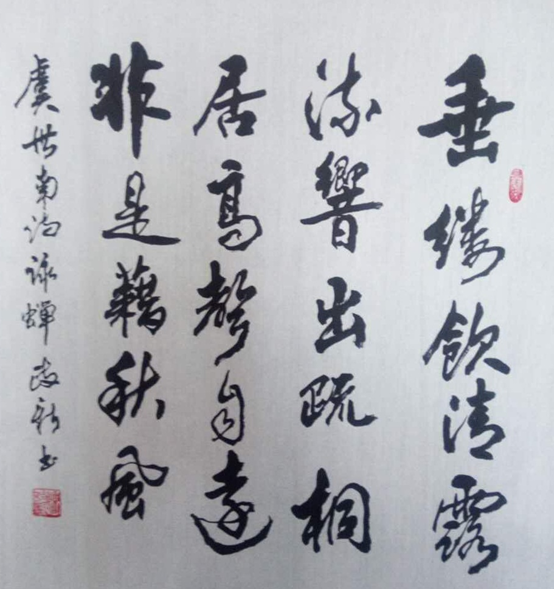 垂缕飲清露
流響出疏桐
居高聲自遠
非是藉秋風
虞世南詩詠蟬 書